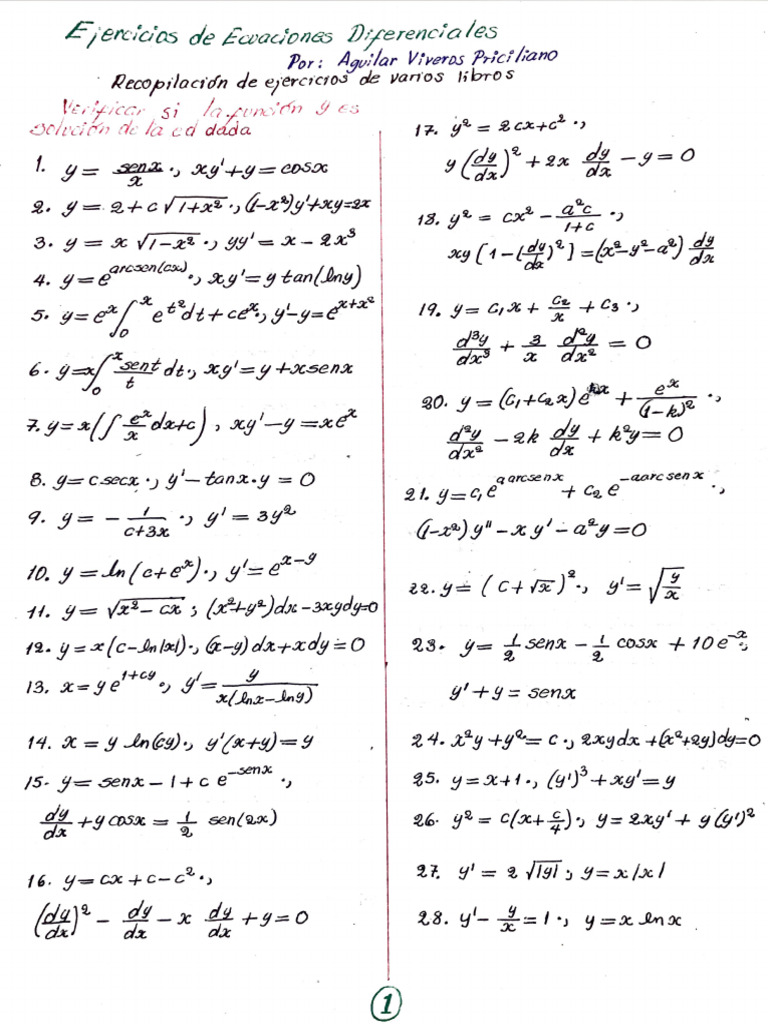 Ejercicios de Ecuaciones Diferenciales
Por: Aguilar Viveros Priciliano
Recopilación de ejercicios de varios libros
Verificar si la función y es
solución de la ed dada
1. y = senx/x ., xy' + y = cosx
2. y = 2 + c√(1+x²) ., (1-x²)y' + xy = 2x
3. y = x√(1-x²) ., yy' = x - 2x³
4. y = e^(arcsen(cx)) ., xy' = y tan(lny)
5. y = e^x ∫₀^x e^(t²)dt + ce^x., y' - y = e^(x+x²)
6. y = x∫₀^x sent/t dt., xy' = y + xsenx
7. y = x(∫ e^x/x dx + c) , xy' - y = xe^x
8. y = c secx ., y' - tanx·y = 0
9. y = - 1/(c+3x) ., y' = 3y²
10. y = ln(c + e^x) ., y' = e^(x-y)
11. y = √(x² - cx) ; (x²+y²)dx - 3xydy=0
12. y = x(c - ln|x|) ., (x-y)dx + xdy = 0
13. x = ye^(1+cy) ., y' = y/(x(lnx - lny))
14. x = y ln(cy) ., y'(x+y) = y
15. y = senx - 1 + c e^(-senx) .,
dy/dx + y cosx = 1/2 sen(2x)
16. y = cx + c - c² .,
(dy/dx)² - dy/dx - x dy/dx + y = 0
17. y² = 2cx + c² .,
y(dy/dx)² + 2x dy/dx - y = 0
18. y² = cx² - a²c/(1+c) .,
xy[1 - (dy/dx)²] = (x² - y² - a²) dy/dx
19. y = c₁x + c₂/x + c₃ .,
d³y/dx³ + 3/x d²y/dx² = 0
20. y = (c₁ + c₂x)e^(kx) + e^x/(1-k)² .,
d²y/dx² - 2k dy/dx + k²y = 0
21. y = c₁e^(a arcsenx) + c₂e^(-a arcsenx) .,
(1-x²)y'' - xy' - a²y = 0
22. y = (c + √x)² ., y' = √(y/x)
23. y = 1/2 senx - 1/2 cosx + 10e^(-x) .,
y' + y = senx
24. x²y + y² = c ., 2xydx + (x²+2y)dy = 0
25. y = x + 1 ., (y')³ + xy' = y
26. y² = c(x + c/4) ., y = 2xy' + y(y')²
27. y' = 2√|y| ; y = x|x|
28. y' - y/x = 1 ., y = x lnx
1